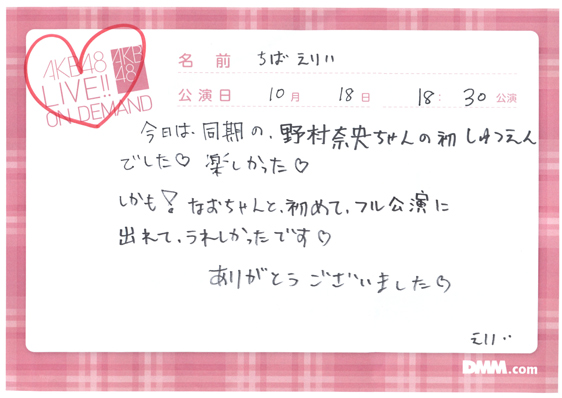 AKB48
LIVE!!
ON DEMAND
AKB
48
名前 ちば えりい
公演日 10月 18日 18:30公演
今日は、同期の、野村奈央ちゃんの初しゅつえん
でした♡ 楽しかった♡
しかも! なおちゃんと、初めて、フル公演に
出れて、うれしかったです♡
ありがとうございました♡
えりい
DMM.com